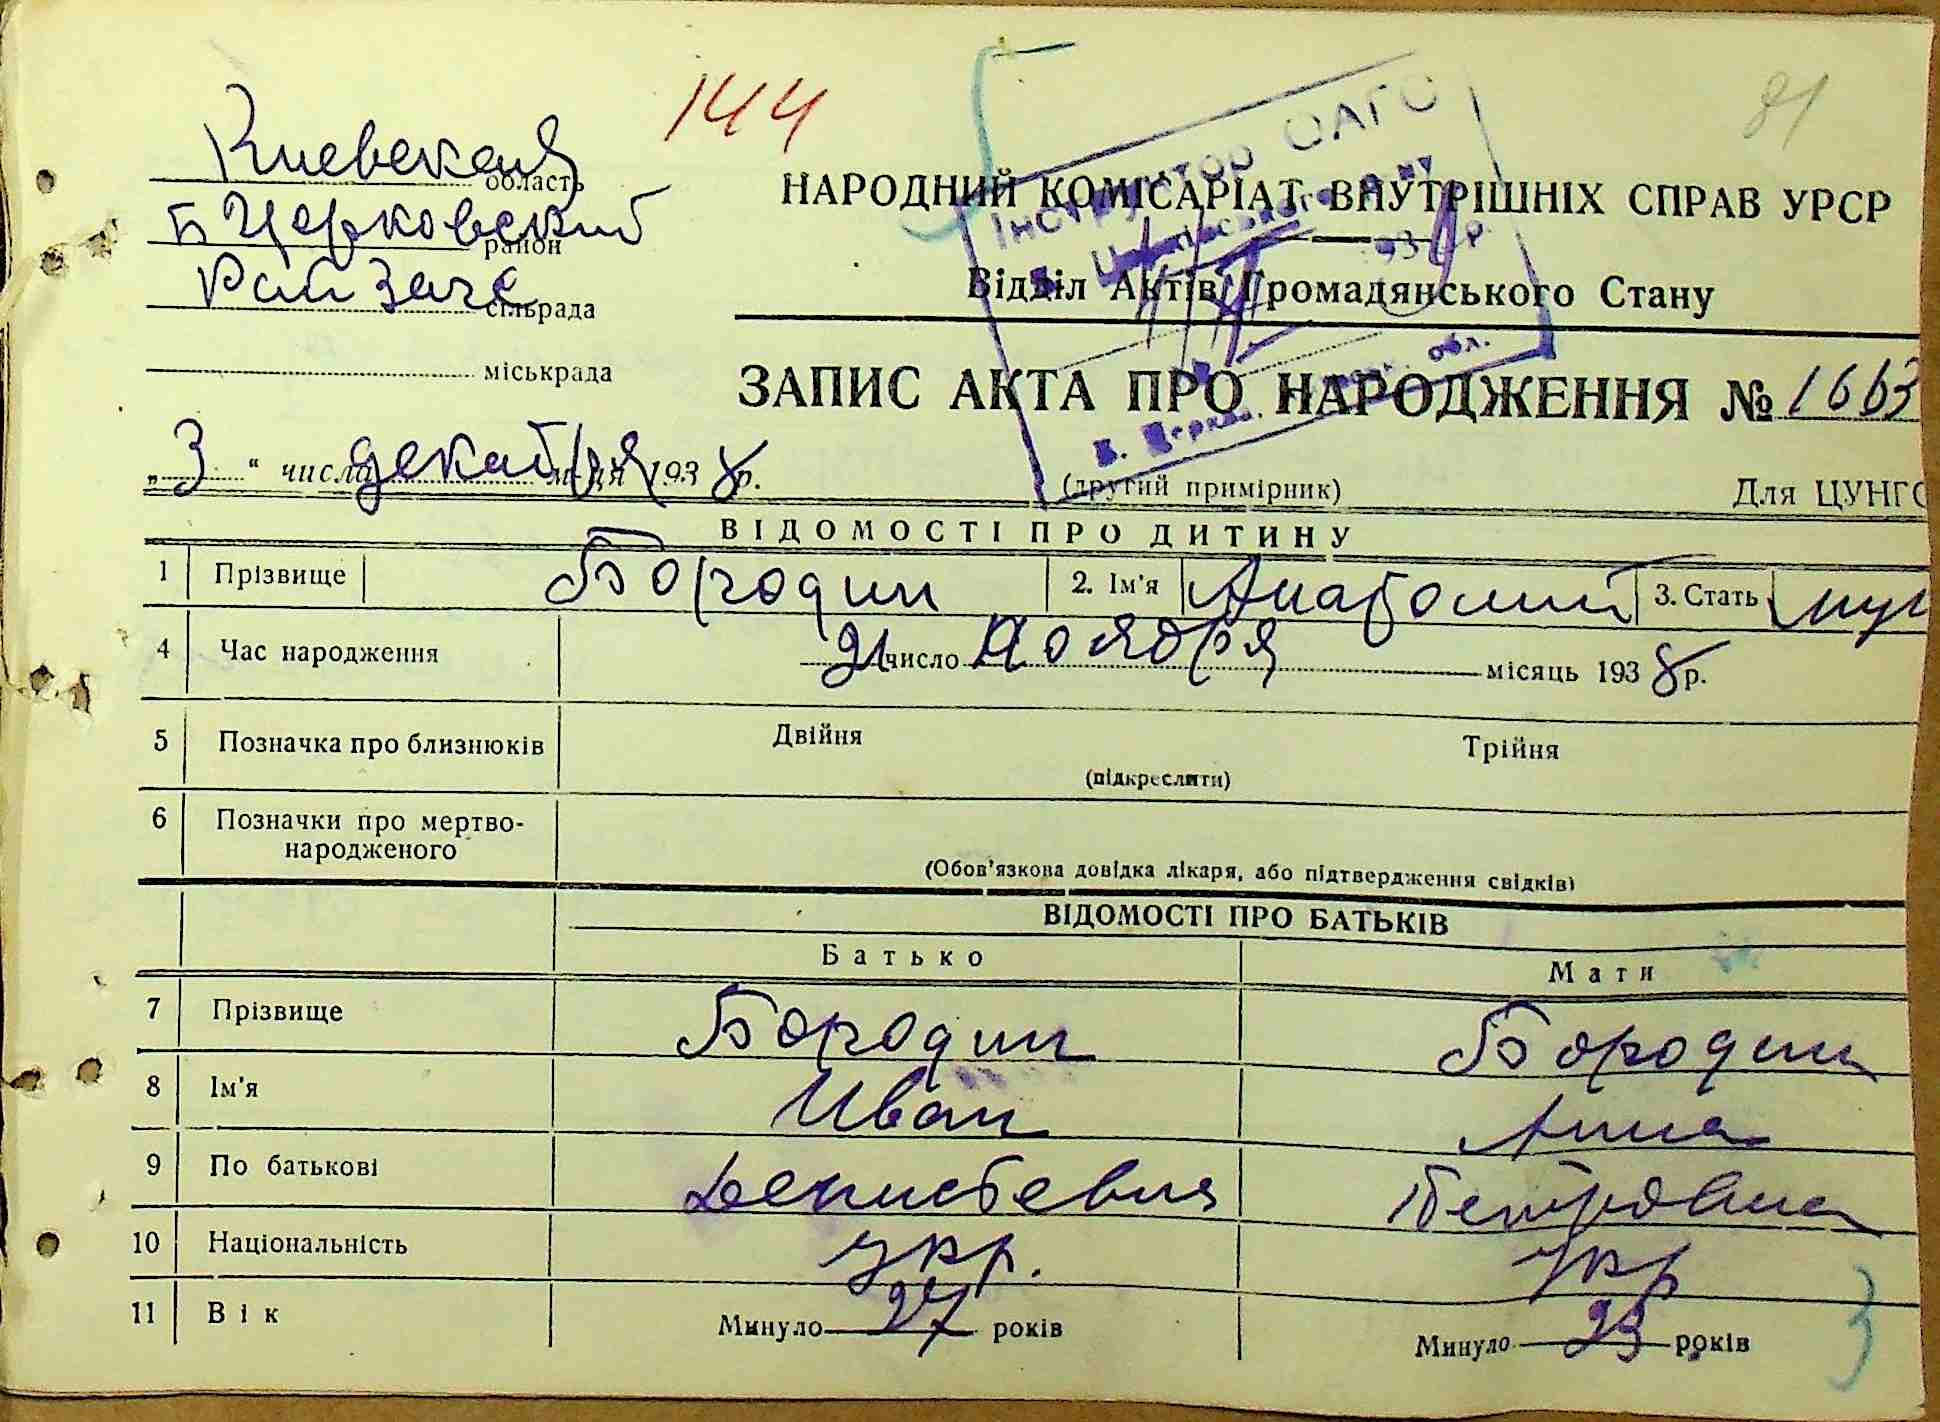 144
91
Киевская область
Б Церковский район
Райзагс сільрада
міськрада
НАРОДНИЙ КОМІСАРІАТ ВНУТРІШНІХ СПРАВ УРСР
Відділ Актів Громадянського Стану
Інструктор ОАГС
Б. Церк. обл.
ЗАПИС АКТА ПРО НАРОДЖЕННЯ № 1663
„3“ числа декабря м-ця 1938 р.
(другий примірник)
Для ЦУНГО
ВІДОМОСТІ ПРО ДИТИНУ
1 Прізвище Бородин 2. Ім'я Анатолий 3. Стать муж
4 Час народження 21 число Ноября місяць 1938 р.
5 Позначка про близнюків Двійня Трійня
(підкреслити)
6 Позначки про мертво-
народженого
(Обов'язкова довідка лікаря, або підтвердження свідків)
ВІДОМОСТІ ПРО БАТЬКІВ
Батько Мати
7 Прізвище Бородин Бородин
8 Ім'я Иван Анна
9 По батькові Денисьевич Петровна
10 Національність укр. укр
11 Вік Минуло 27 років Минуло 23 років
3